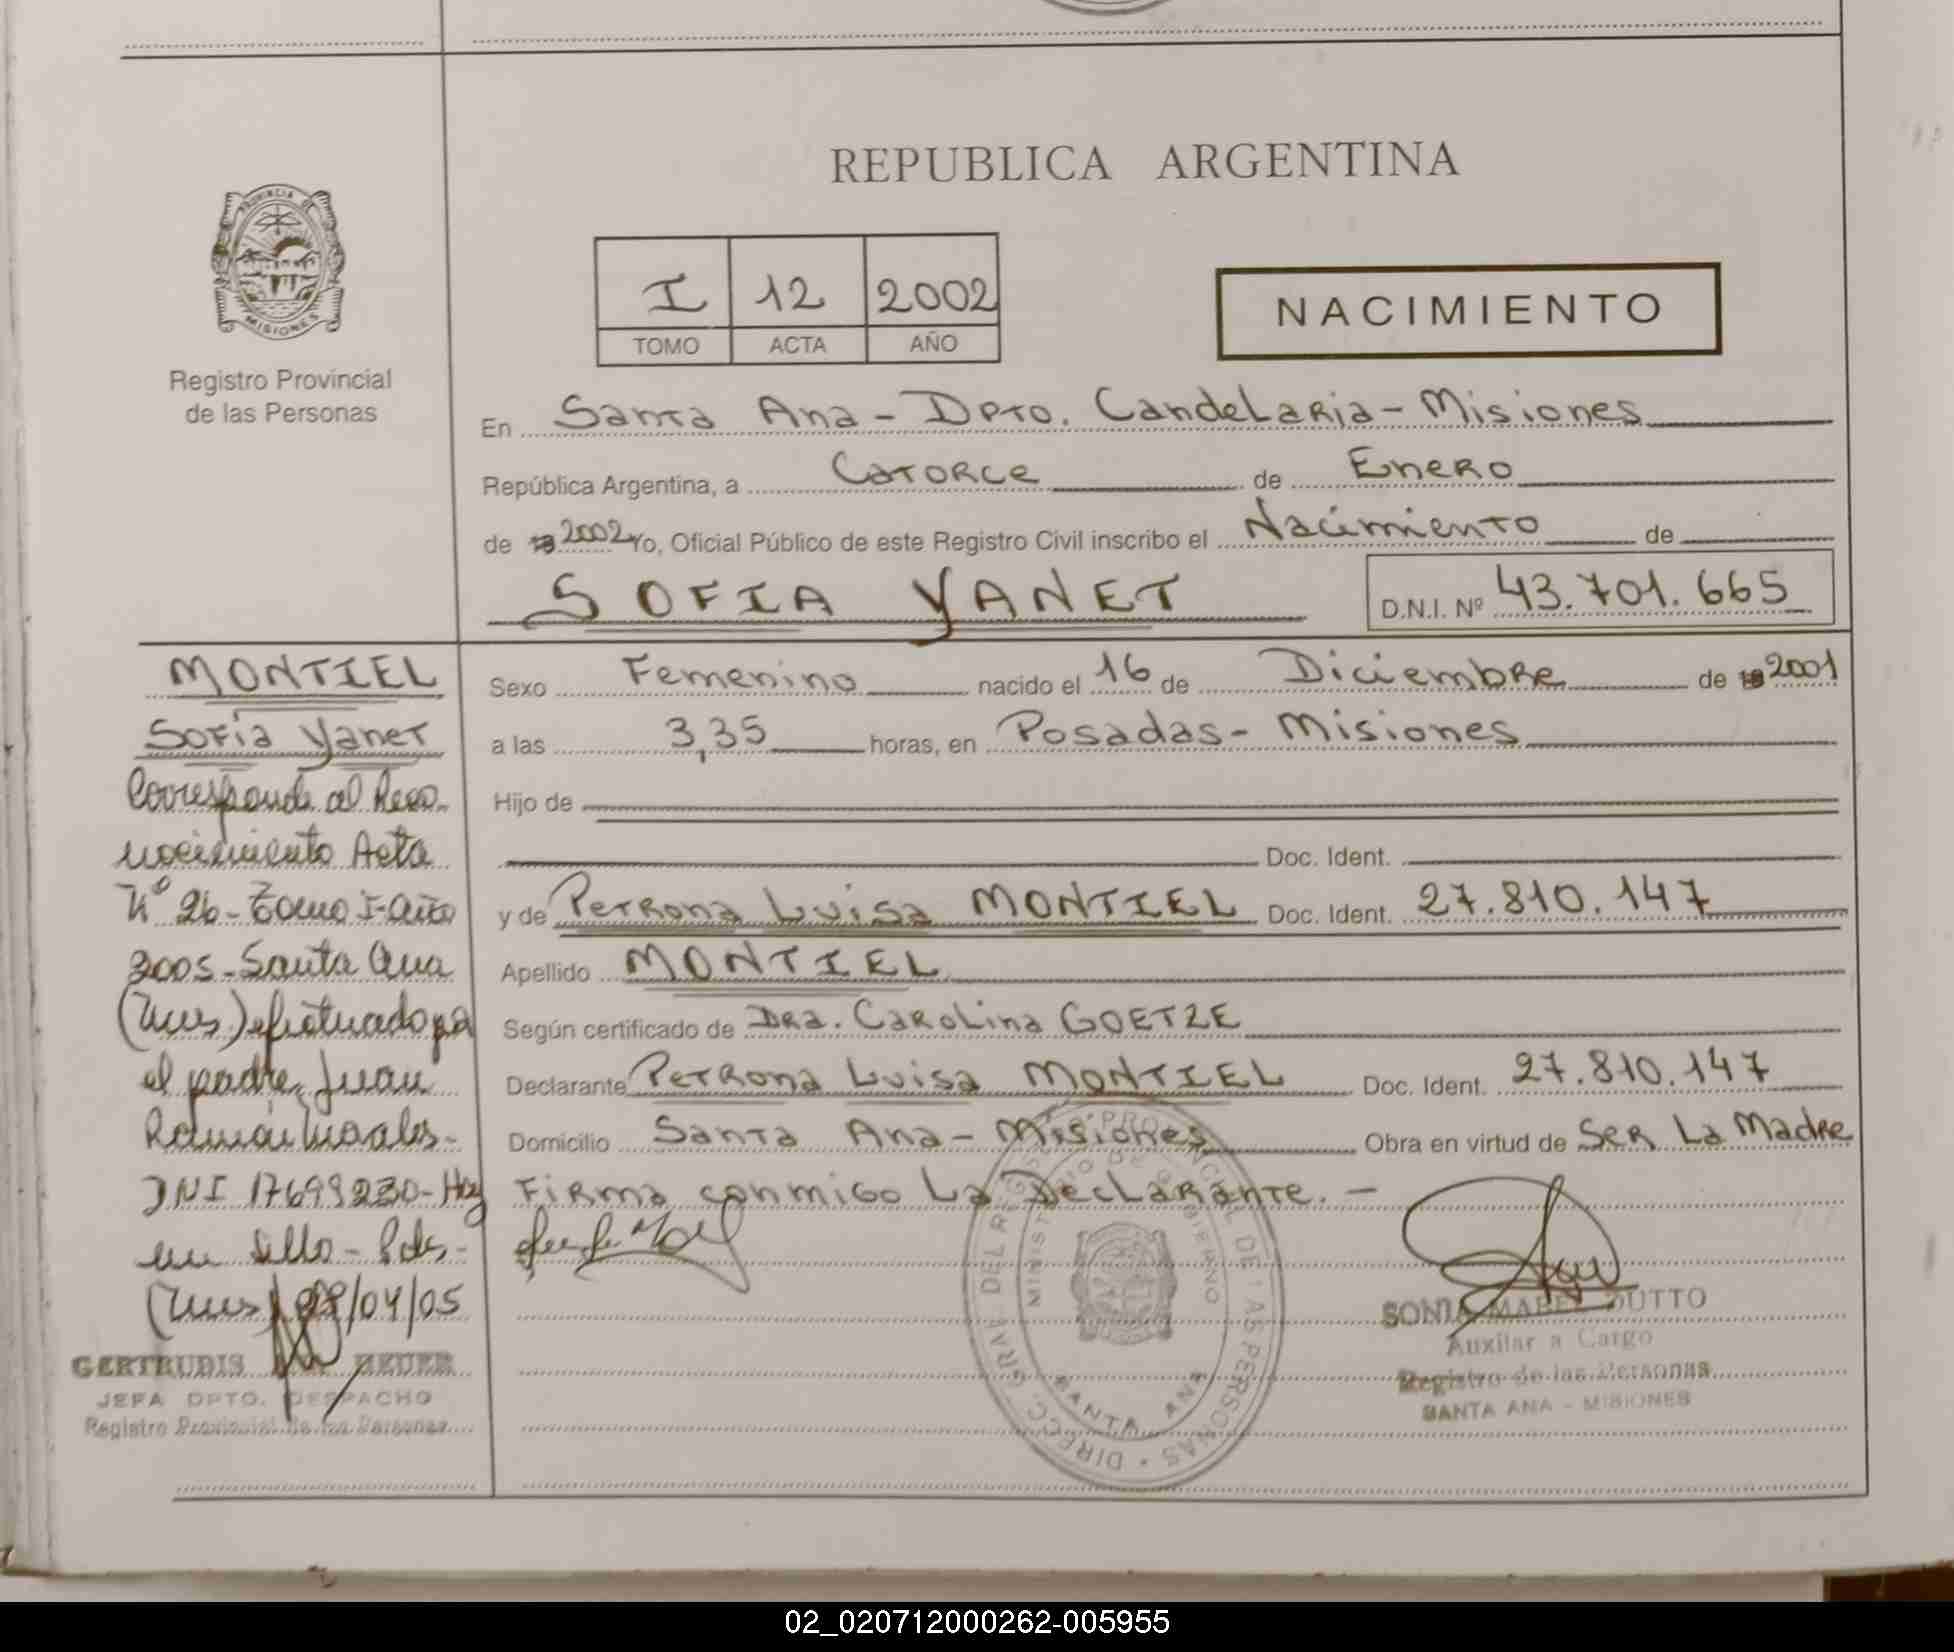 REPUBLICA ARGENTINA
PROVINCIA DE
MISIONES
Registro Provincial
de las Personas
I 12 2002
TOMO ACTA AÑO
NACIMIENTO
En Santa Ana - Dpto. Candelaria - Misiones
República Argentina, a Catorce de Enero
de 2002 Yo, Oficial Público de este Registro Civil inscribo el Nacimiento de
SOFIA YANET
D.N.I. Nº 43.701.665
MONTIEL
Sofía Yanet
Corresponde al Reco-
nocimiento Acta
Nº 26 - Tomo I - Año
2005 - Santa Ana
(Mnes) efectuado pa
el padre, Juan
Ramón Morales -
DNI 17699230 - Hay
un sello - Pdas -
(Mnes) /04/05
GERTRUDIS HEUER
JEFA DPTO. DESPACHO
Registro Provincial de las Personas
Sexo Femenino nacido el 16 de Diciembre de 2001
a las 3,35 horas, en Posadas - Misiones
Hijo de
Doc. Ident.
y de Petrona Luisa MONTIEL Doc. Ident. 27.810.147
Apellido MONTIEL
Según certificado de Dra. Carolina GOETZE
Declarante Petrona Luisa MONTIEL Doc. Ident. 27.810.147
Domicilio Santa Ana - Misiones Obra en virtud de Ser La Madre
Firma conmigo La Declarante. -
DIRECC. GRAL. DEL REG. PROVINCIAL DE LAS PERSONAS
MINISTERIO DE GOBIERNO
SANTA ANA
SONIA MABEL DUTTO
Auxiliar a Cargo
Registro de las Personas
SANTA ANA - MISIONES
02_020712000262-005955